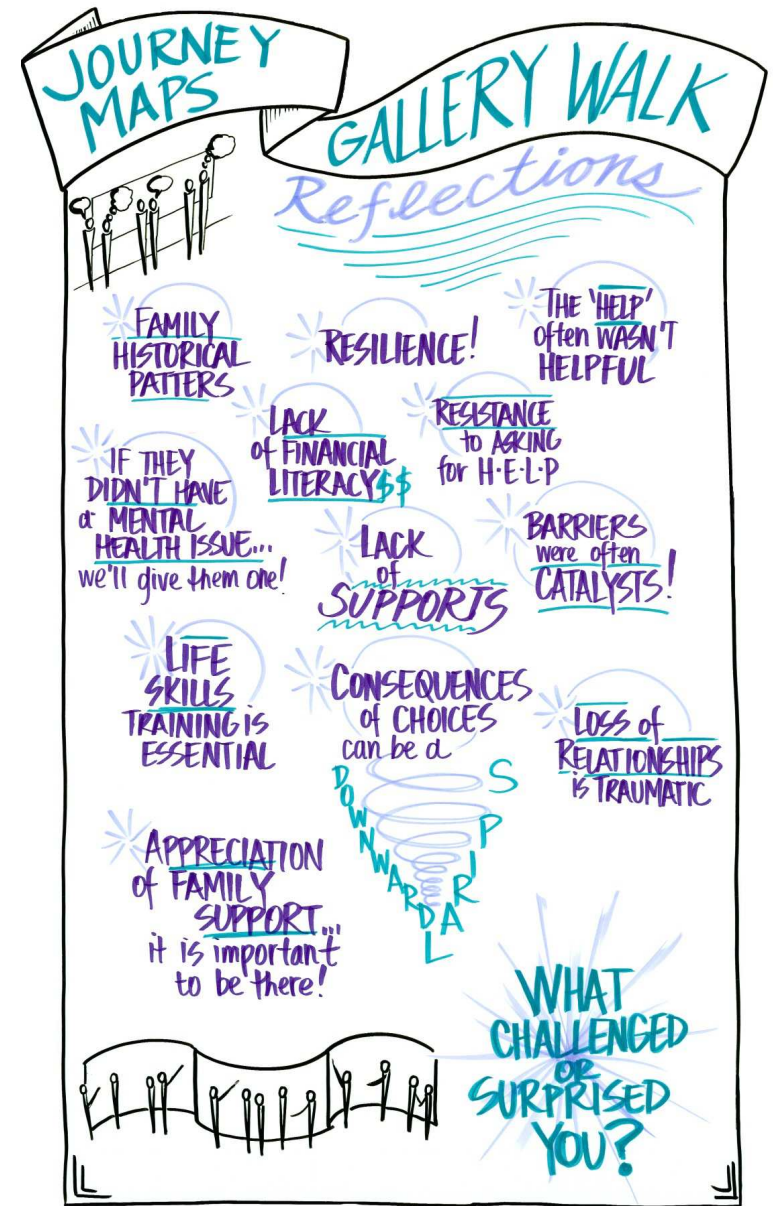 JOURNEY
MAPS
GALLERY WALK
Reflections
FAMILY
HISTORICAL
PATTERS
RESILIENCE!
THE 'HELP'
often WASN'T
HELPFUL
LACK
of FINANCIAL
LITERACY $$
RESISTANCE
to ASKING
for H·E·L·P
IF THEY
DIDN'T HAVE
a MENTAL
HEALTH ISSUE...
we'll give them one!
LACK
of
SUPPORTS
BARRIERS
were often
CATALYSTS!
LIFE
SKILLS
TRAINING is
ESSENTIAL
CONSEQUENCES
of CHOICES
can be a
DOWNWARD
SPIRAL
LOSS of
RELATIONSHIPS
is TRAUMATIC
APPRECIATION
of FAMILY
SUPPORT...
it is important
to be there!
WHAT
CHALLENGED
OR
SURPRISED
YOU?